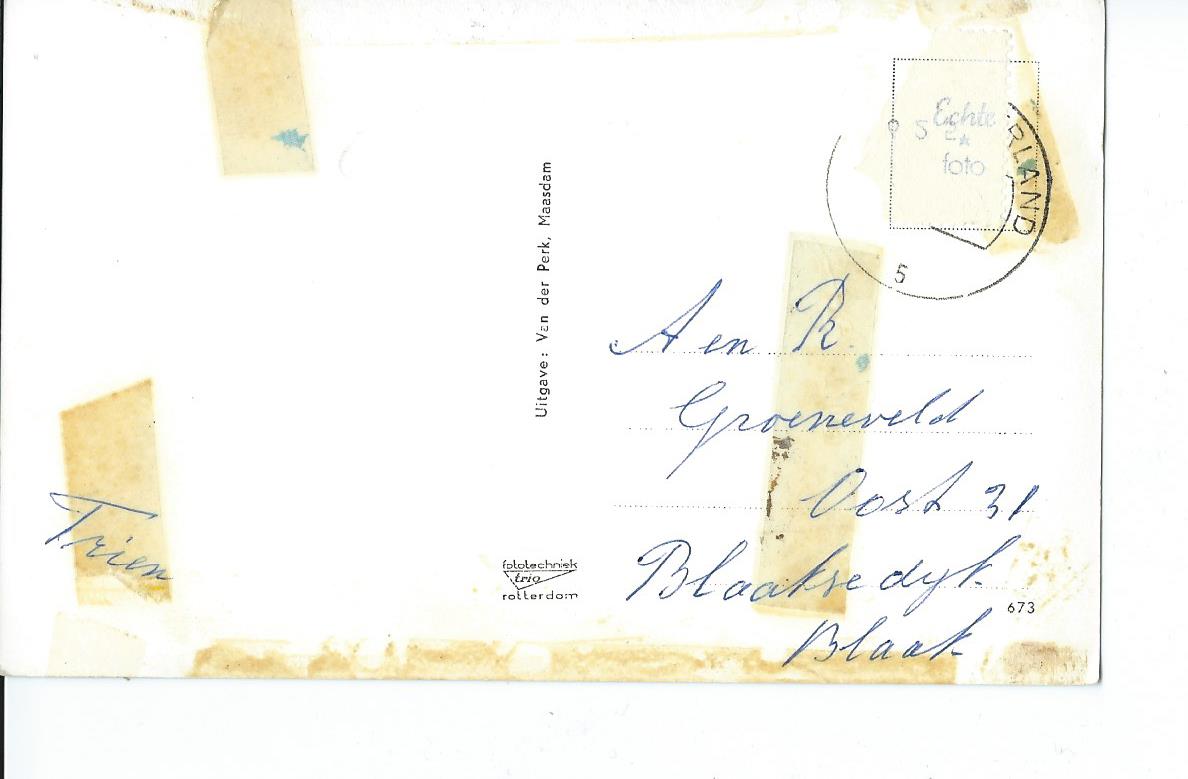 Echte
foto
RLAND
5
Uitgave: Van der Perk, Maasdam
A en R.
Groeneveld
Oost 31
Blaaksedyk
Blaak
Trien
fototechniek
trio
rotterdam
673